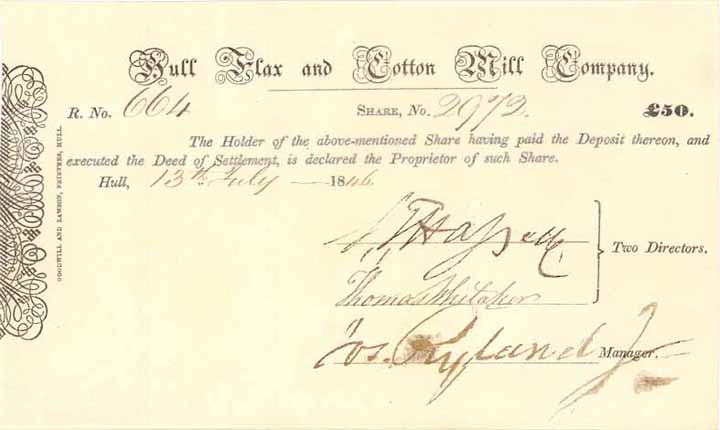 Hull Flax and Cotton Mill Company.
R. No. 664 Share, No. 2972. £50.
The Holder of the above-mentioned Share having paid the Deposit thereon, and
executed the Deed of Settlement, is declared the Proprietor of such Share.
Hull, 13th July 1846
Two Directors.
Thomas Whitaker
Jos. Ryland Manager.
GOODWILL AND LAWSON, PRINTERS, HULL.